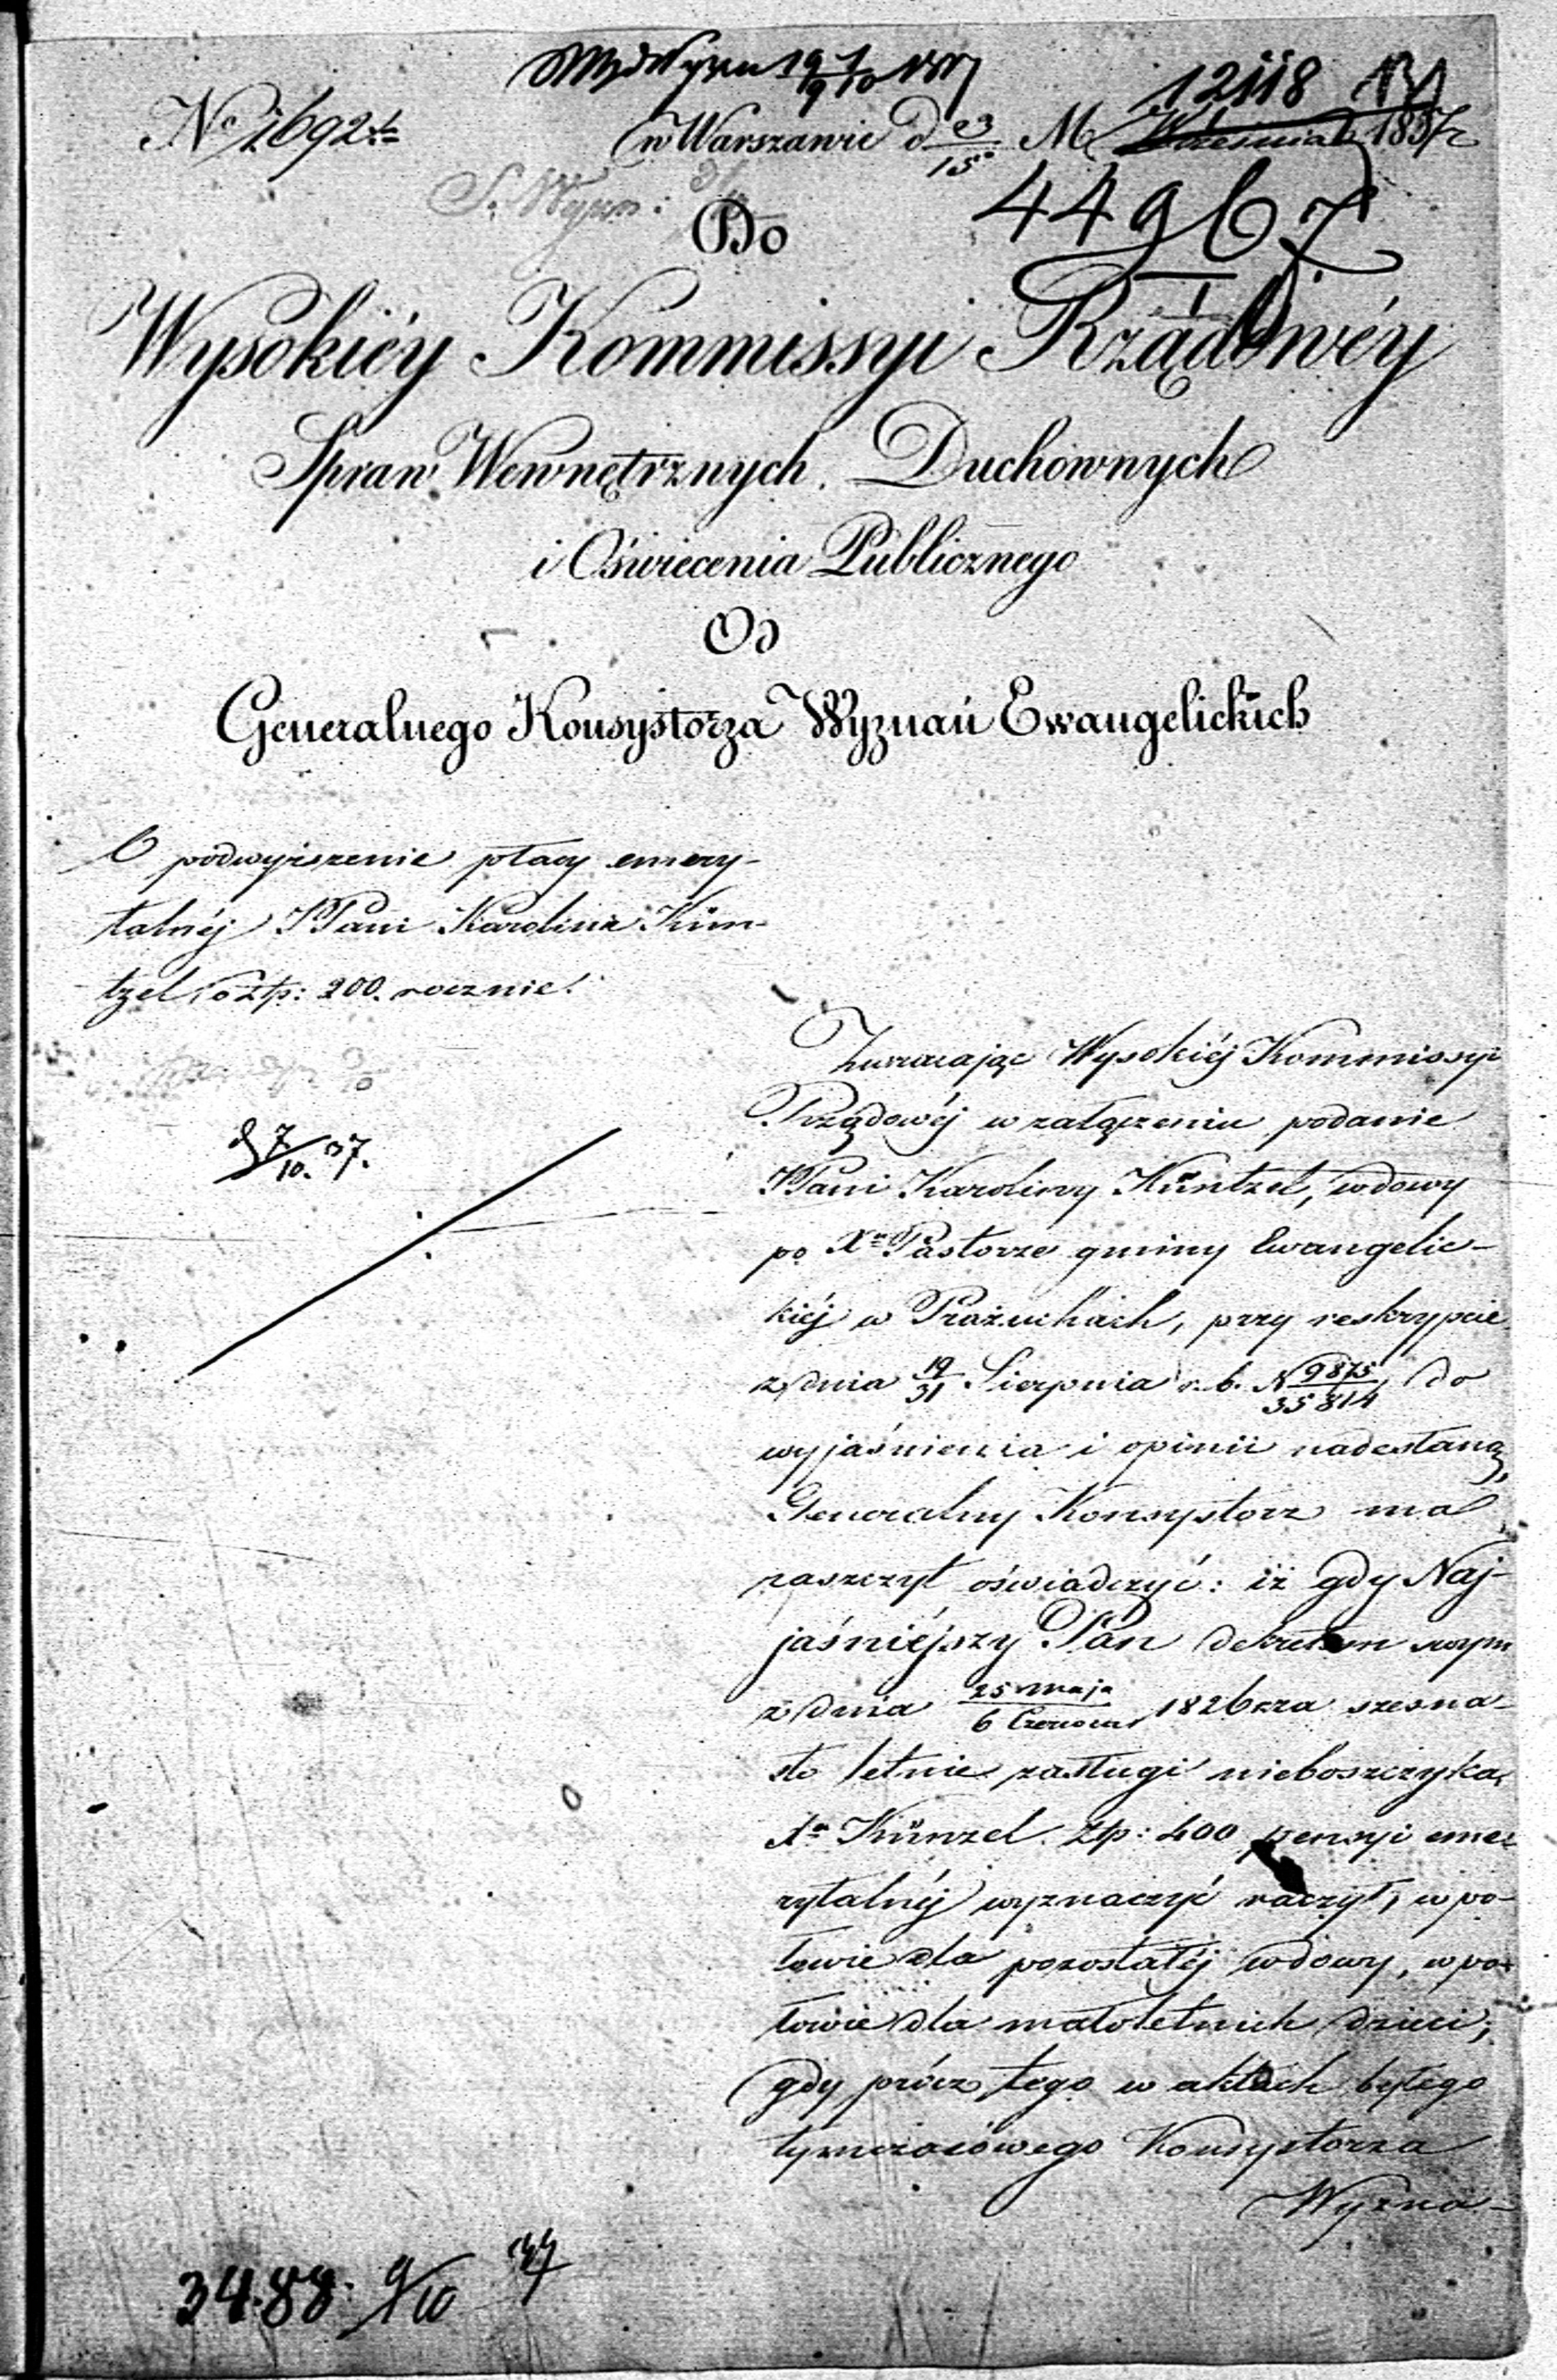 12118
No 1692
w Warszawie d 23/15 M Września 1837 r
S. Wyzn:
44967
Do
Wysokiéy Kommissyi Rządowéy
Spraw Wewnętrznych, Duchownych
i Oświecenia Publicznego
Od
Generalnego Konsystorza Wyznań Ewangelickich
O podwyższenie płacy emery-
talnéj JPani Karolinie Kün-
tzel o Złp: 200. rocznie.
d 7/10. 37.
Zwracając Wysokiéj Kommissyi
Rządowéj w załączeniu podanie
JPani Karoliny Küntzel, wdowy
po Xu Pastorze gminy Ewangelic-
kiéj w Prażuchach, przy reskrypcie
z dnia 19/31 Sierpnia r. b. N 9875/35814 do
wyjaśnienia i opinii nadesłaną,
Generalny Konsystorz ma
zaszczyt oświadczyć: iż gdy Naj-
jaśniéjszy Pan dekretem swym
z dnia 25 Maja/6 Czerwca 1826 za szesna-
sto letnie zasługi nieboszczyka
Xa Künzel Złp: 400 pensyi eme-
rytalnéj wyznaczyć raczył, w po-
łowie dla pozostałéj wdowy, w po-
łowie dla małoletnich dzieci;
gdy prócz tego w aktach byłego
tymczasowego Konsystorza
Wyzna-
3488. 9/10 37